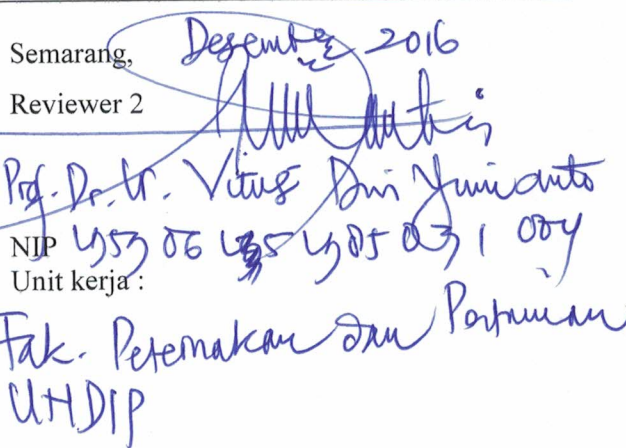 Semarang, Desember 2016
Reviewer 2
Prof. Dr. Ir. Vitus Dwi Yunianto
NIP 1953 06 1985 031 004
Unit kerja :
Fak. Peternakan dan Pertanian
UNDIP